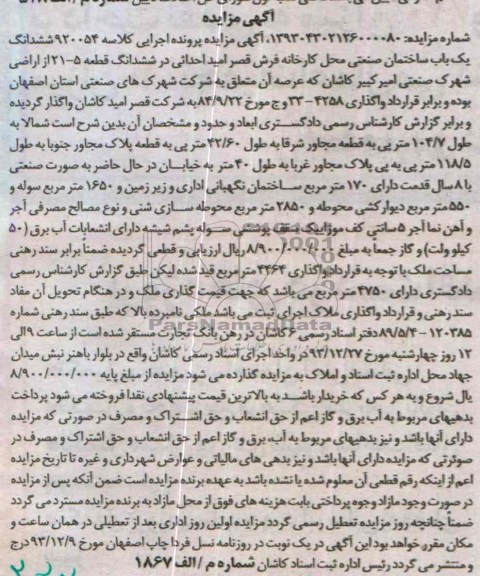 آگهی مزایده
شماره مزایده: ۱۳۹۳۰۴۳۰۲۱۲۶۰۰۰۰۸۰، آگهی مزایده پرونده اجرایی کلاسه ۹۲۰۰۵۴ ششدانگ
یک باب ساختمان صنعتی محل کارخانه فرش قصر امید احداثی در ششدانگ قطعه ۵-۲۱ از اراضی
شهرک صنعتی امیر کبیر کاشان که عرصه آن متعلق به شرکت شهرک های صنعتی استان اصفهان
بوده و برابر قرارداد واگذاری ۴۲۵۸-۳۳ و ج مورخ ۸۴/۹/۲۲ به شرکت قصر امید کاشان واگذار گردیده
و برابر گزارش کارشناس رسمی دادگستری ابعاد و حدود و مشخصان آن بدین شرح است شمالا به
طول ۱۰۴/۷ متر پی به قطعه مجاور شرقا به طول ۴۲/۶۰ متر پی به قطعه پلاک مجاور جنوبا به طول
۱۱۸/۵ متر پی به پی پلاک مجاور غربا به طول ۴۰ متر به خیابان در حال حاضر به صورت صنعتی
با ۸ سال قدمت دارای ۱۷۰ متر مربع ساختمان نگهبانی اداری و زیر زمین و ۱۶۵۰ متر مربع سوله و
۵۵۰ متر مربع دیوار کشی محوطه و ۲۸۵۰ متر مربع محوطه سازی شنی و نوع مصالح مصرفی آجر
و آهن نما آجر ۵ سانتی کف موزاییک سقف پوششی سوله پشم شیشه دارای انشعابات آب برق (۵۰
کیلو ولت) و گاز جمعاً به مبلغ ۸/۹۰۰/۰۰۰/۰۰۰ ریال ارزیابی و قطعی گردیده ضمناً برابر سند رهنی
مساحت ملک با توجه به قرارداد واگذاری ۴۴۶۴ متر مربع قید شده لیکن طبق گزارش کارشناس رسمی
دادگستری دارای ۴۷۵۰ متر مربع می باشد که جهت قیمت گذاری ملک و در هنگام تحویل آن مفاد
سند رهنی و قرارداد واگذاری ملاک اجرای ثبت می باشد ملکی نامبرده بالا که طبق سند رهنی شماره
۱۲۰۳۸۵ - ۸۹/۵/۴ دفتر اسناد رسمی ۶ کاشان در رهن بانک تجارت مستقر شده است از ساعت ۹ الی
۱۲ روز چهارشنبه مورخ ۹۳/۱۲/۲۷ در واحد اجرای اسناد رسمی کاشان واقع در بلوار باهنر نبش میدان
جهاد محل اداره ثبت اسناد و املاک به مزایده گذارده می شود مزایده از مبلغ پایه ۸/۹۰۰/۰۰۰/۰۰۰
یال شروع و به هر کس که خریدار باشد به بالاترین قیمت پیشنهادی نقدا فروخته می شود پرداخت
بدهیهای مربوط به آب برق و گاز اعم از حق انشعاب و حق اشتراک و مصرف در صورتی که مزایده
دارای آنها باشد و نیز بدهیهای مربوط به آب، برق و گاز اعم از حق انشعاب و حق اشتراک و مصرف در
صوئرتی که مزایده دارای آنها باشد و نیز بدهی های مالیاتی و عوارض شهرداری و غیره تا تاریخ مزایده
اعم از اینکه رقم قطعی آن معلوم شده یا نشده باشد به عهده برنده مزایده است ضمن آنکه پس از مزایده
در صورت وجود مازاد وجوه پرداختی بابت هزینه های فوق از محل مازاد به برنده مزایده مسترد می گردد
ضمناً چنانچه روز مزایده تعطیل رسمی گردد مزایده اولین روز اداری بعد از تعطیلی در همان ساعت و
مکان مقرر خواهد بود این آگهی در یک نوبت در روزنامه نسل فردا چاپ اصفهان مورخ ۹۳/۱۲/۹ درج
و منتشر می گردد رئیس اداره ثبت اسناد کاشان شماره م / الف ۱۸۶۷